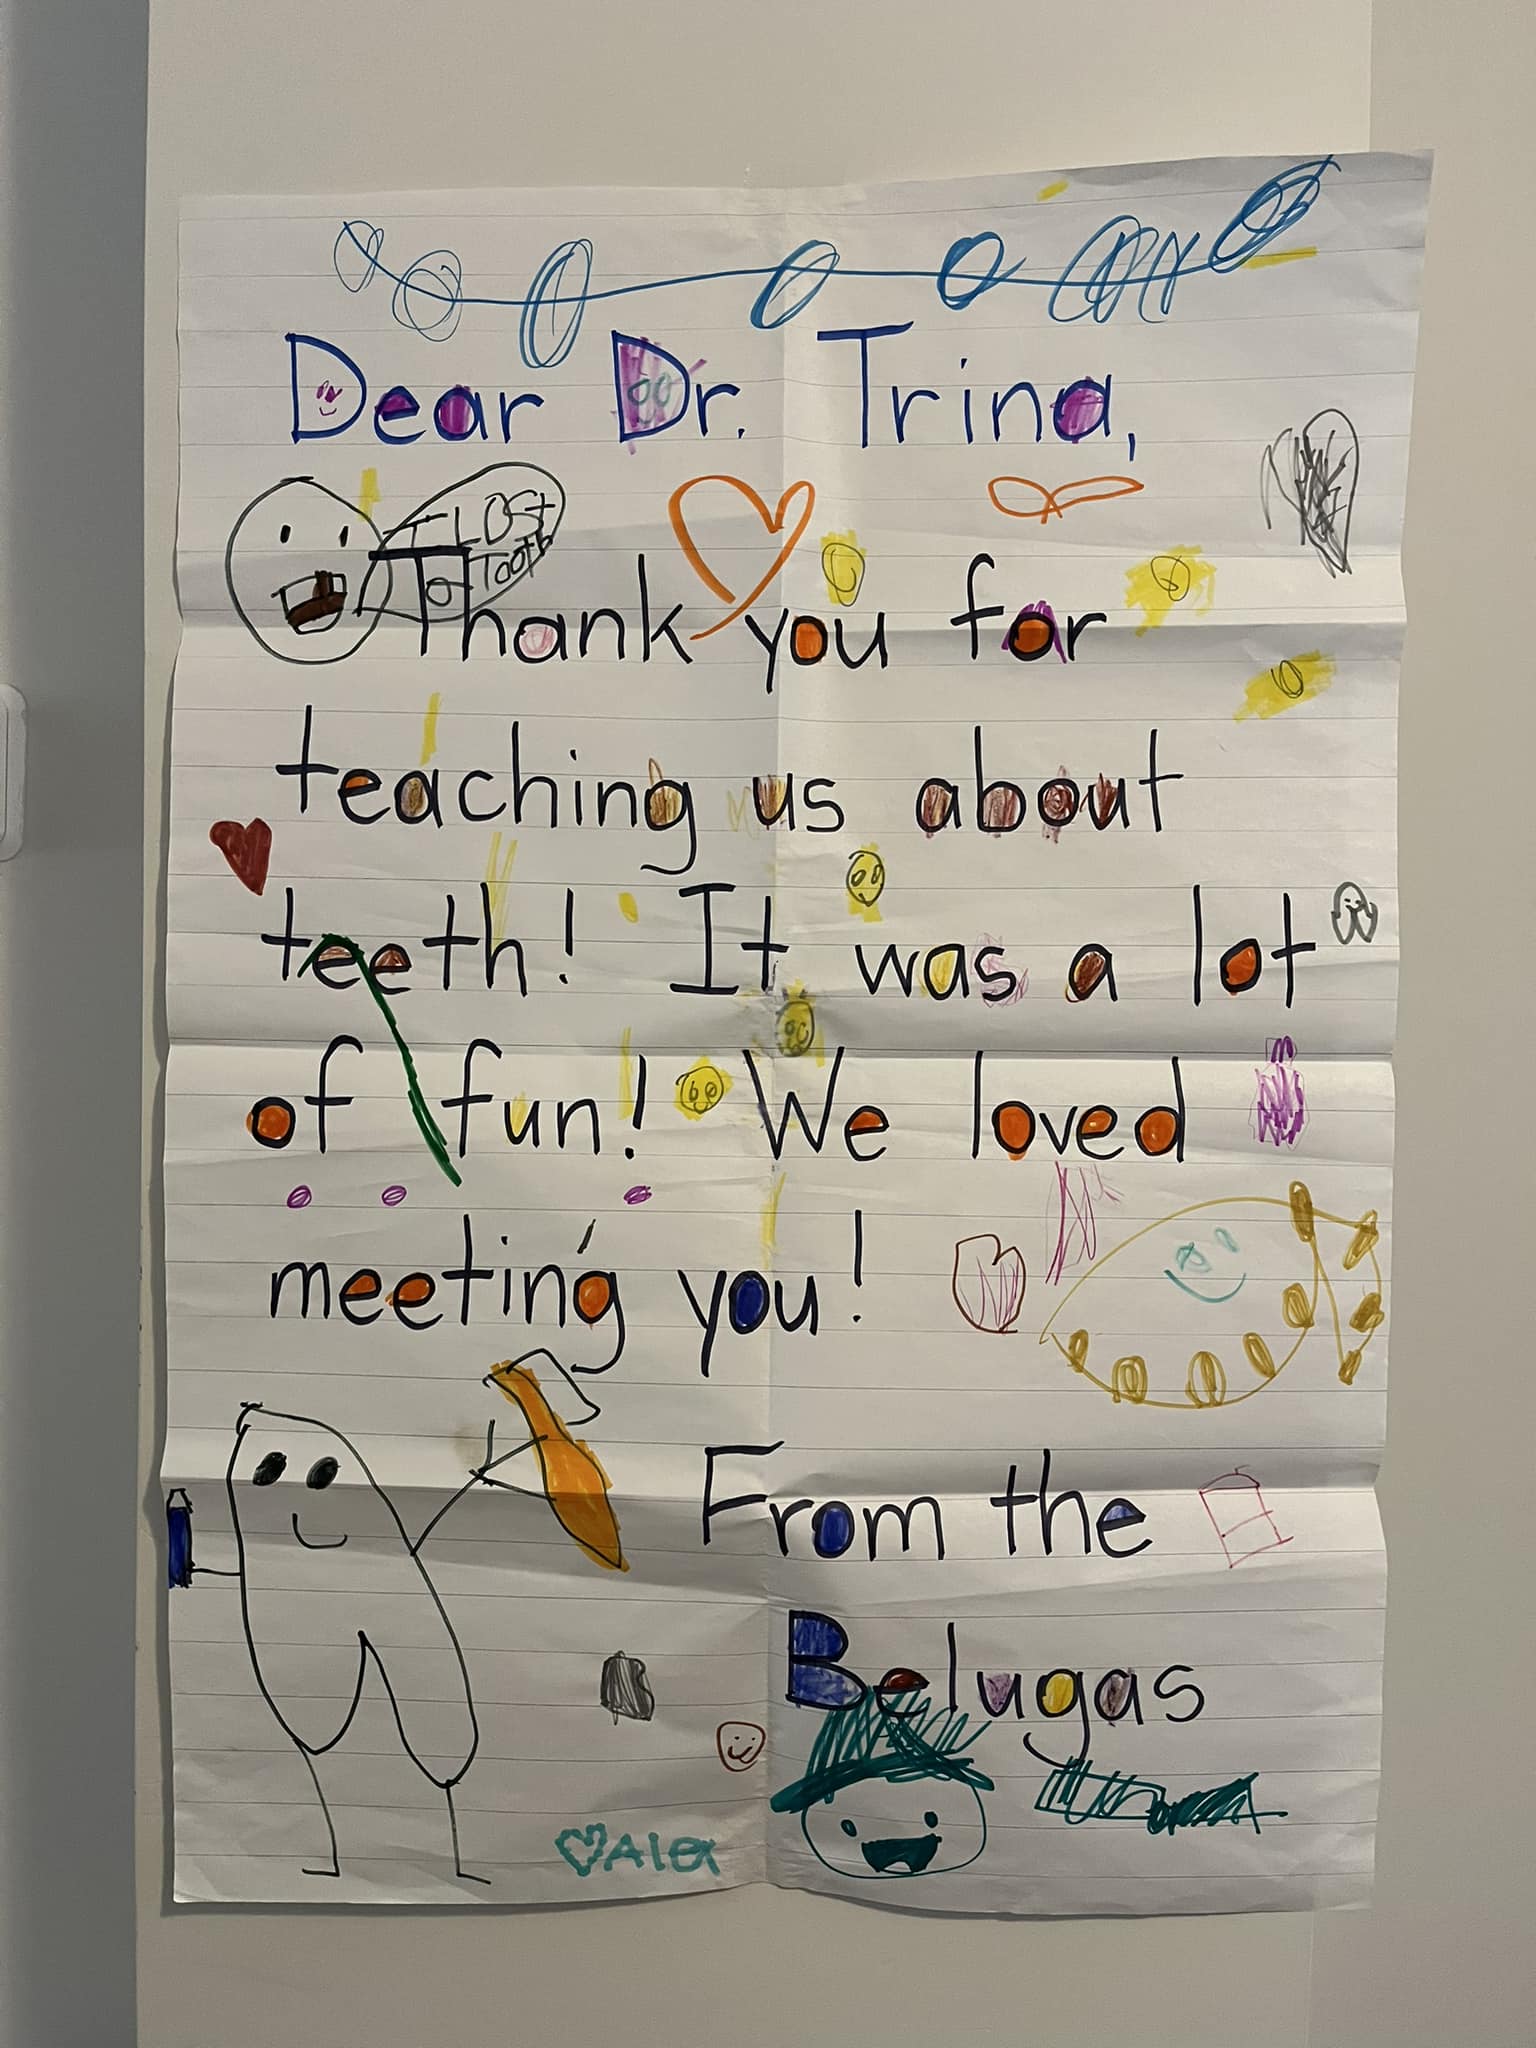 Dear Dr. Trina,
I LOST
a Tooth
Thank you for
teaching us about
teeth! It was a lot
of fun! We loved
meeting you!
From the
Belugas
Alex